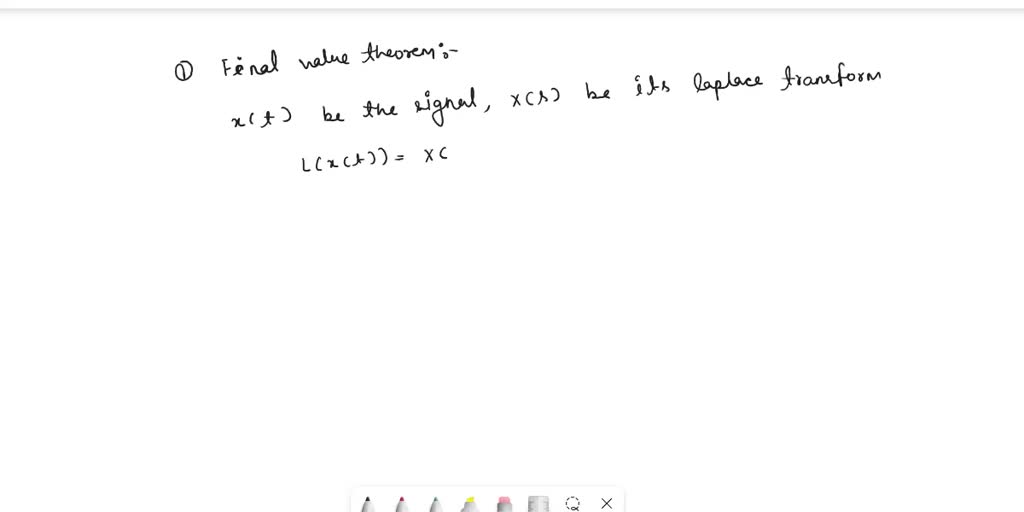 ① Final value theorem:-
x(t) be the signal, x(s) be its laplace transform
L(x(t)) = x(